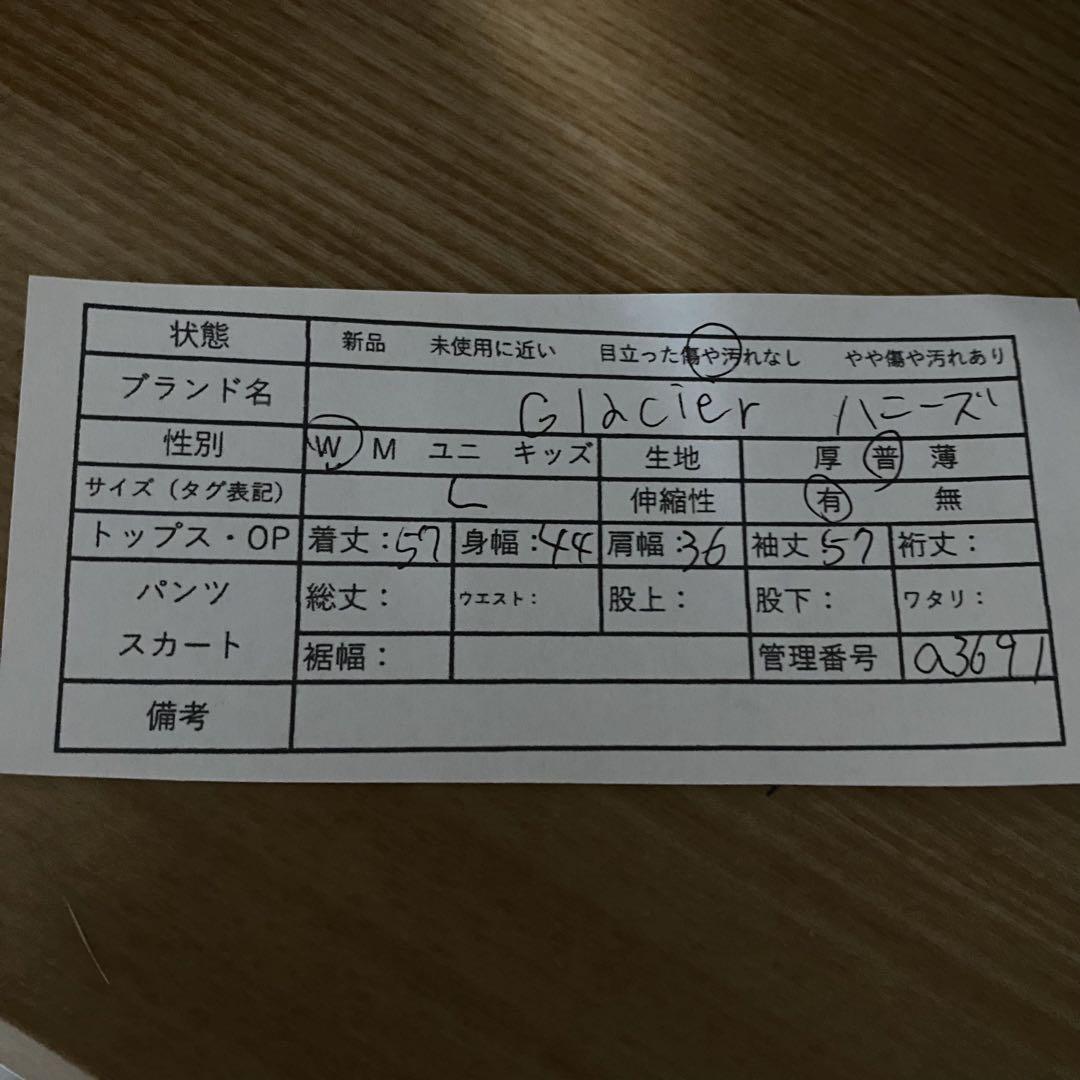 状態 新品 未使用に近い 目立った傷や汚れなし やや傷や汚れあり
ブランド名 Glacier ハニーズ
性別 W M ユニ キッズ 生地 厚 普 薄
サイズ（タグ表記） L 伸縮性 有 無
トップス・OP 着丈：57 身幅：44 肩幅：36 袖丈 57 裄丈：
パンツ スカート 総丈： ウエスト： 股上： 股下： ワタリ：
裾幅： 管理番号 a3691
備考